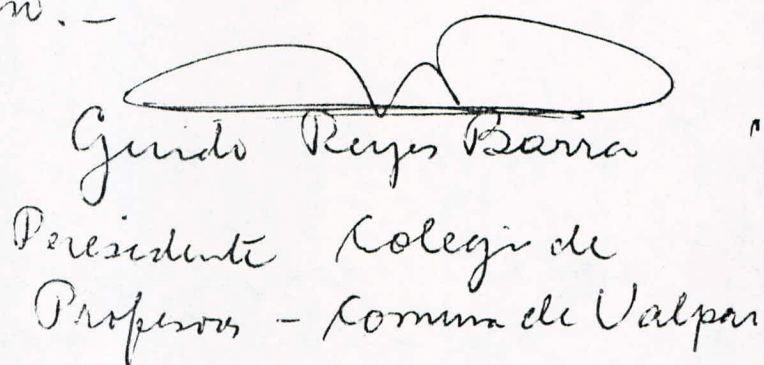 Guido Reyes Barra
Presidente Colegio de
Profesores - Comuna de Valpar